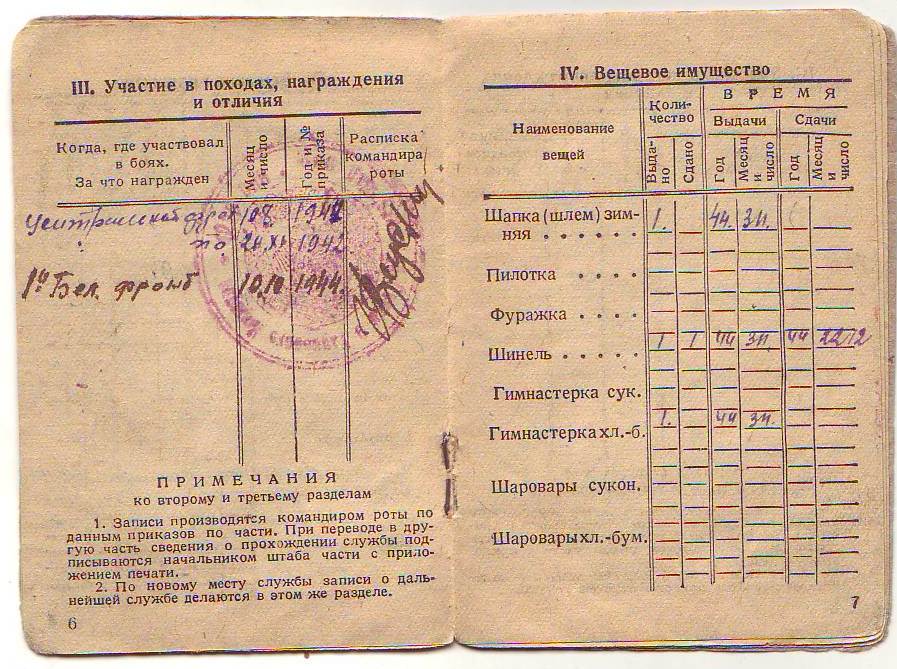 III. Участие в походах, награждения
и отличия
Когда, где участвовал
в боях.
За что награжден
Месяц
и число
Год и №
приказа
Расписка
командира
роты
1942
по 1942
1й Бел. фронт 10.10 1944.
ПРИМЕЧАНИЯ
ко второму и третьему разделам
1. Записи производятся командиром роты по
данным приказов по части. При переводе в дру-
гую часть сведения о прохождении службы под-
писываются начальником штаба части с прило-
жением печати.
2. По новому месту службы записи о даль-
нейшей службе делаются в этом же разделе.
6
IV. Вещевое имущество
Наименование
вещей
Коли-
чество
ВРЕМЯ
Выдачи
Сдачи
Выда-
но
Сдано
Год
Месяц
и
число
Год
Месяц
и
число
Шапка (шлем) зим-
няя . . . . . . 1. 44.
Пилотка . . . .
Фуражка . . . .
Шинель . . . . . 1 1 44 44 22 12
Гимнастерка сук.
Гимнастерка хл.-б. 1. 44
Шаровары сукон.
Шаровары хл.-бум.
7